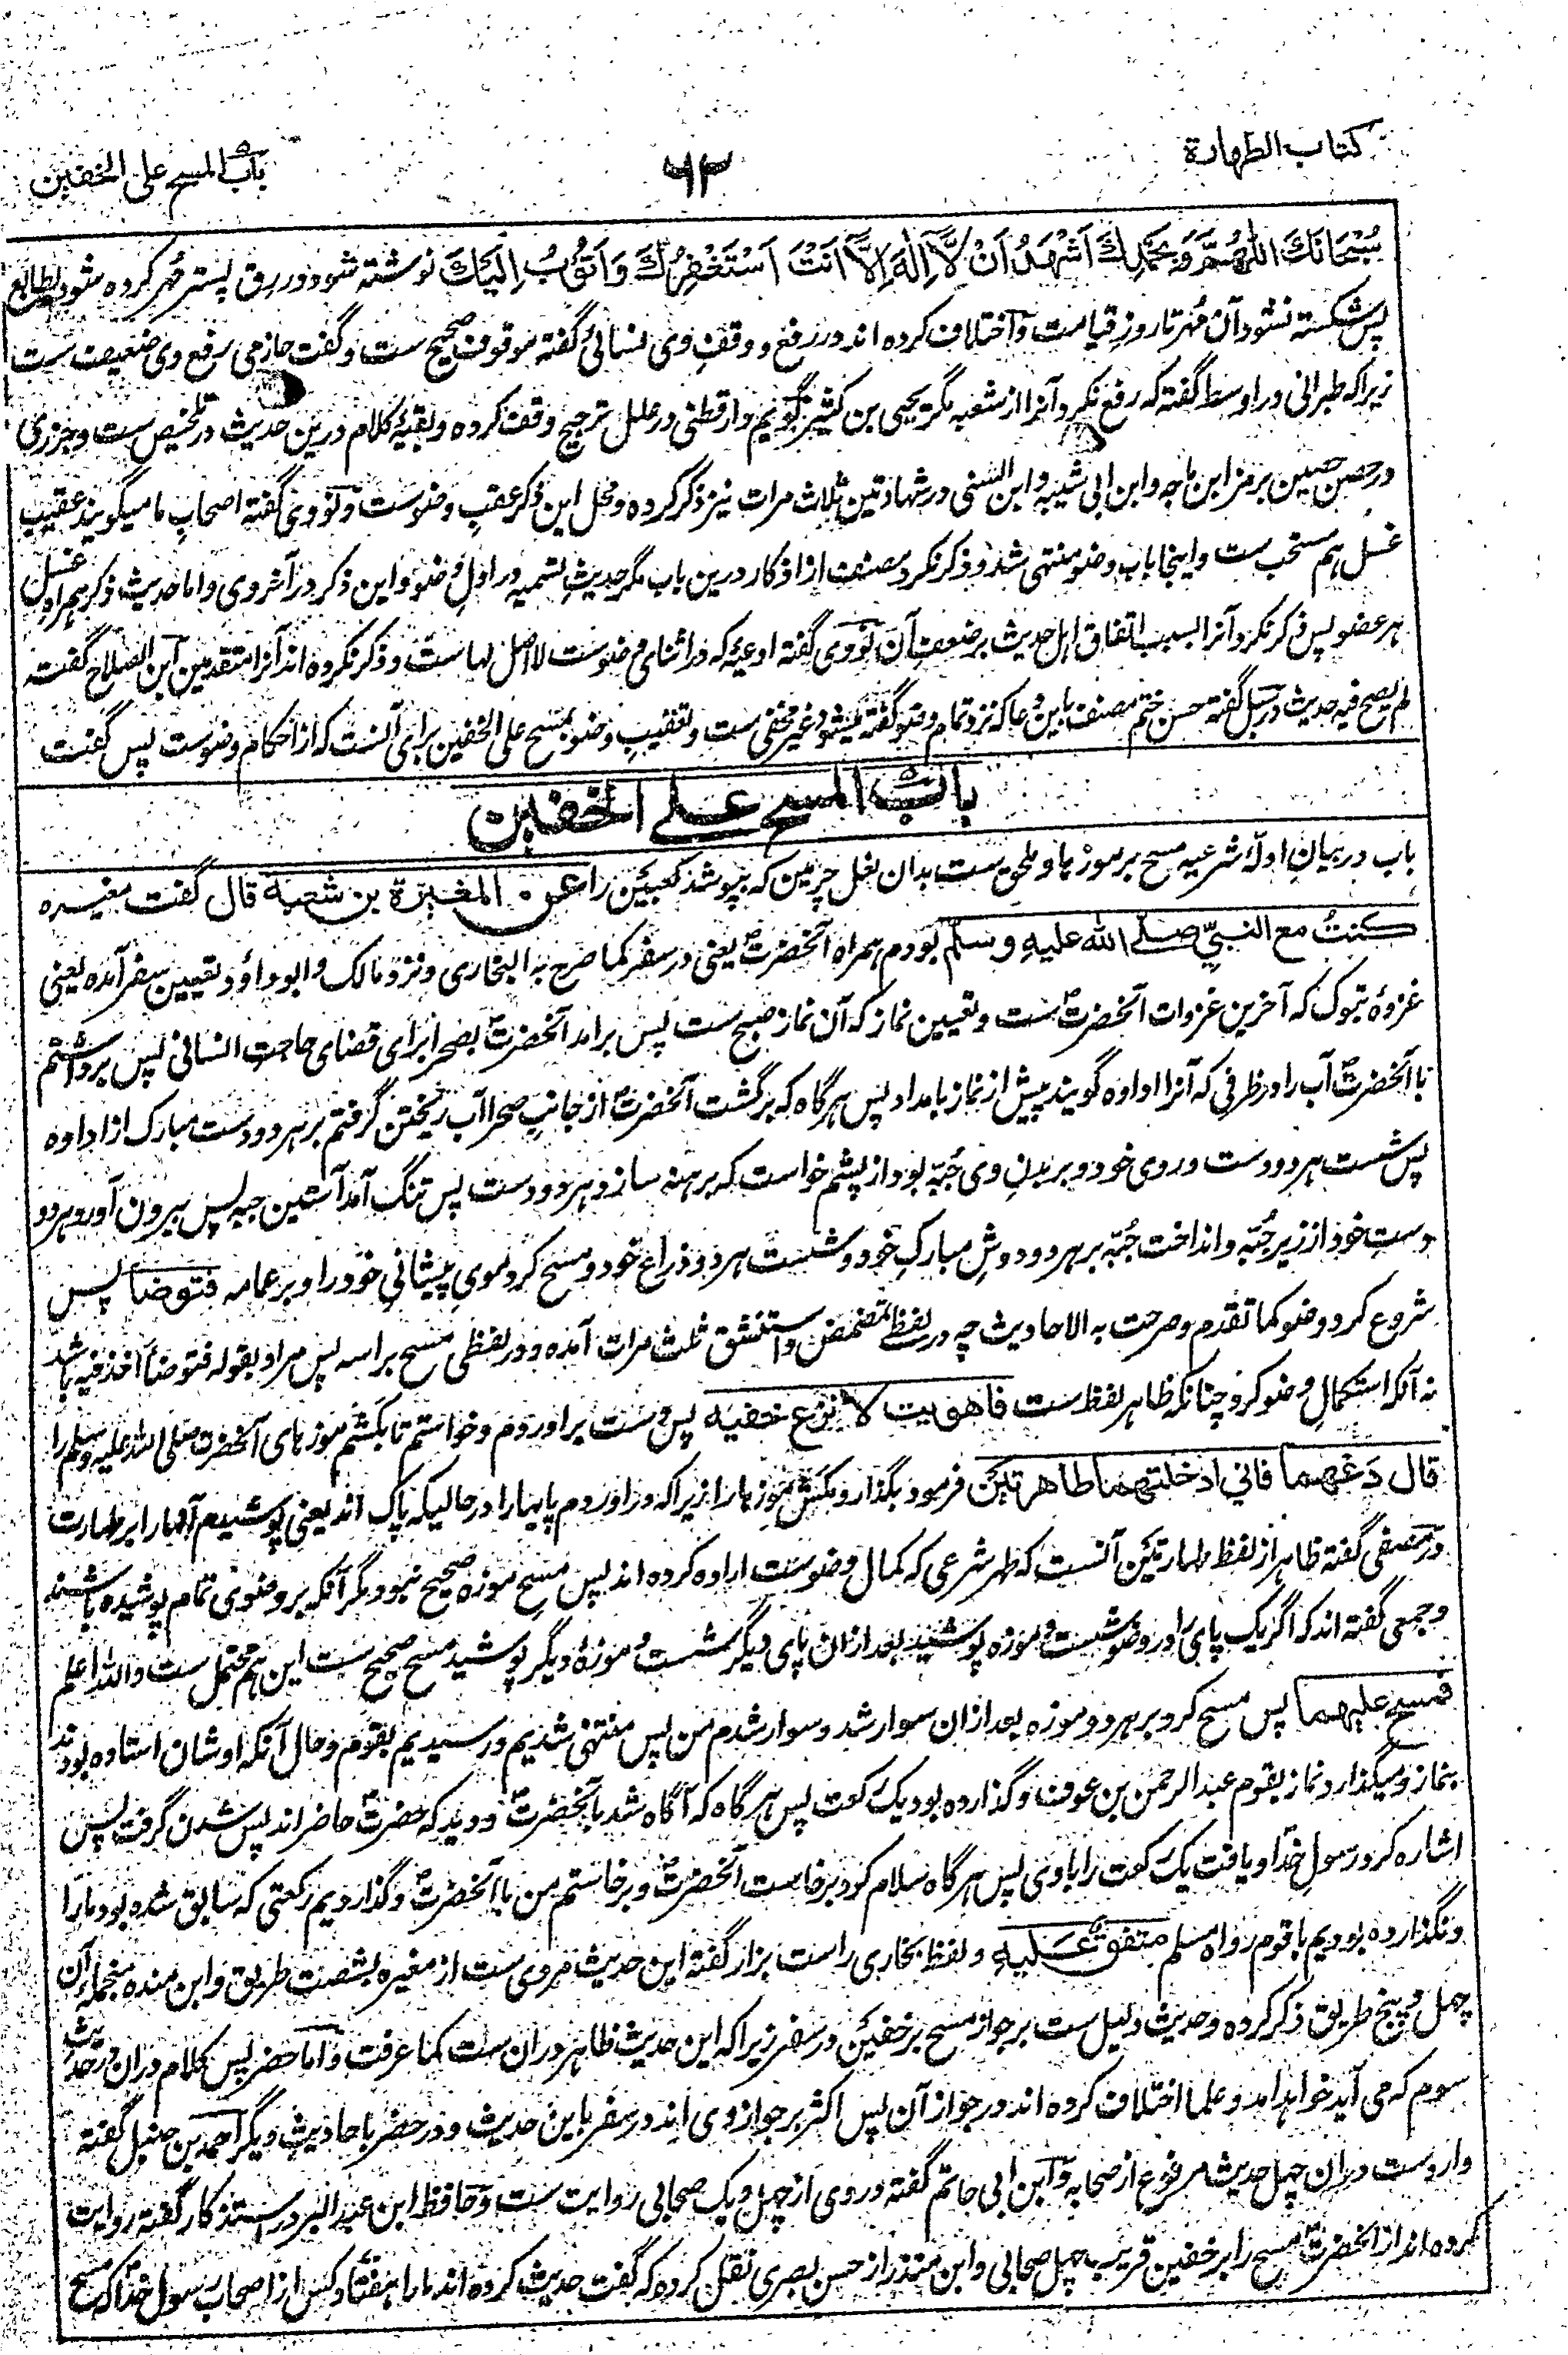 کتاب الطهارة
۶۲
باب المسح علی الخفین
سُبْحَانَكَ اللّٰهُمَّ وَبِحَمْدِكَ اَشْهَدُ اَنْ لَّا اِلٰهَ اِلَّا اَنْتَ اَسْتَغْفِرُكَ وَاَتُوْبُ اِلَيْكَ نوشته شود در رق پستر مُهر کرده شود بطابع
پس شکسته نشود آن مُهر تا روزِ قیامت و اختلاف کرده اند در رفع و وقفِ وی نسائی گفته موقوف صحیح ست و گفت حازمی رفع وی ضعیف ست
زیراکه طبرانی در اوسط گفته که رفع نکرد آنرا از شعبه مگر یحیی بن کثیر گویم دارقطنی در علل ترجیح وقف کرده و بقیهٔ کلام درین حدیث در تلخیص ست و جزری
در حصن حصین برمز ابن ماجه و ابن ابی شیبه و ابن السنی در شهادتین ثلاث مرات نیز ذکر کرده و محل این ذکر عقبِ وضوست و نووی گفته اصحابِ ما میگویند عقیب
غسل هم مستحب ست و اینجا باب وضو منتهی شد و ذکر نکرد مصنف از اذکار درین باب مگر حدیثِ تسمیه در اولِ وضو و این ذکر در آخر وی و اما حدیث ذکر همراهِ غسل
هر عضو پس ذکر نکرد آنرا بسبب اتفاق اهلِ حدیث بر ضعفِ آن نووی گفته ادعیهٔ که در اثنای وضوست لا اصل لهاست و ذکر نکرده اند آنرا متقدمین ابن الصلاح گفته
لم یصح فیه حدیث در سبل گفته حسن ختم مصنف باین دعا که نزد تمام وضو گفته میشود غیر مخفی ست و تعقیبِ وضو بمسح علی الخفین برای آنست که از احکام وضوست پس گفت
باب المسح علی الخفین
باب در بیانِ ادلهٔ شرعیه مسح بر موزها و ملحق ست بدان نعل چرمین که بپوشد کعبین را عن المغیرة بن شعبة قال گفت مغیره
کنتُ مع النبیِّ صلی الله علیه وسلم بودم همراه آنحضرتؐ یعنی در سفر کما صرح به البخاری و نزد مالک و ابوداؤد تعیین سفر آمده یعنی
غزوهٔ تبوک که آخرین غزوات آنحضرتؐ ست و تعیین نماز که آن نماز صبح ست پس برامد آنحضرتؐ بصحرا برای قضای حاجت انسانی پس برداشتم
با آنحضرتؐ آب را در ظرفی که آنرا اداوه گویند پیش از نماز بامداد پس هرگاه که برگشت آنحضرتؐ از جانبِ صحرا آب ریختن گرفتم بر هر دو دست مبارک از اداوه
پس شست هر دو دست و روی خود و بر بدنِ وی جُبّه بود از پشم خواست که برهنه سازد هر دو دست پس تنگ آمد آستین جبه پس بیرون آورد هر دو
دستِ خود از زیرِ جُبّه و انداخت جُبّه بر هر دو دوشِ مبارکِ خود و شست هر دو ذراع خود و مسح کرد موی پیشانیِ خود را و بر عمامه فتوضأ پس
شروع کرد وضو کما تقدم و صرحت به الاحادیث چه در لفظ تمضمض و استنشق ثلث مرات آمده و در لفظی مسح براسه پس مراد بقوله فتوضأ اخذ فیه باشد
نه آنکه استکمالِ وضو کرد چنانکه ظاهر لفظ ست فاهویت لأنزع خفیه پس دست براوردم و خواستم تا بکشم موزهای آنحضرت صلی الله علیه وسلم را
قال دَعْهما فانی ادخلتهما طاهرتین فرمود بگذار و مکش موزها را زیراکه دراوردم پایها را در حالیکه پاک اند یعنی پوشیدم آنها را بر طهارت
در مصفی گفته ظاهر از لفظ طهارتین آنست که طهر شرعی که کمال وضوست اراده کرده اند پس مسح موزه صحیح نبود مگر آنکه بر وضوی تمام پوشیده باشند
و جمعی گفته اند که اگر یک پای را در وضو شست و موزه پوشید بعد ازان پای دیگر شست و موزهٔ دیگر پوشید مسح صحیح ست این هم محتمل ست والله اعلم
فمسح علیهما پس مسح کرد بر هر دو موزه بعد ازان سوار شد و سوار شدم من پس منتهی شدیم و رسیدیم بقوم و حال آنکه اوشان استاده بودند
بنماز و میگذارد نماز بقوم عبد الرحمن بن عوف و گذارده بود یک رکعت پس هرگاه که آگاه شد بآنحضرتؐ و دید که حضرتؐ حاضر اند پس شدن گرفت پس
اشاره کرد رسولِ خدا و یافت یک رکعت را با وی پس هرگاه سلام کرد برخاست آنحضرتؐ و برخاستم من با آنحضرتؐ و گذاردیم رکعتی که سابق شده بود ما را
و نگذارده بودیم با قوم رواه مسلم متفق علیه و لفظ بخاری راست بزار گفته این حدیث مروی ست از مغیره بشصت طریق و ابن منده منجملهٔ آن
چهل و پنج طریق ذکر کرده و حدیث دلیل ست بر جواز مسح بر خفین در سفر زیراکه این حدیث ظاهر دران ست کما عرفت و اما حضر پس کلام دران در حدیث
سوم که می آید خواهد امد و علما اختلاف کرده اند در جواز آن پس اکثر بر جواز وی اند در سفر باین حدیث و در حضر با حادیث دیگر احمد بن حنبل گفته
واردست دران چهل حدیث مرفوع از صحابه و ابن ابی حاتم گفته در وی از چهل و یک صحابی روایت ست و حافظ ابن عبد البر در استذکار گفته روایت
کرده اند از آنحضرتؐ مسح را بر خفین قریب چهل صحابی و ابن منذر از حسن بصری نقل کرده که گفت حدیث کرده اند ما را هفتاد کس از اصحاب رسول خدا که مسح